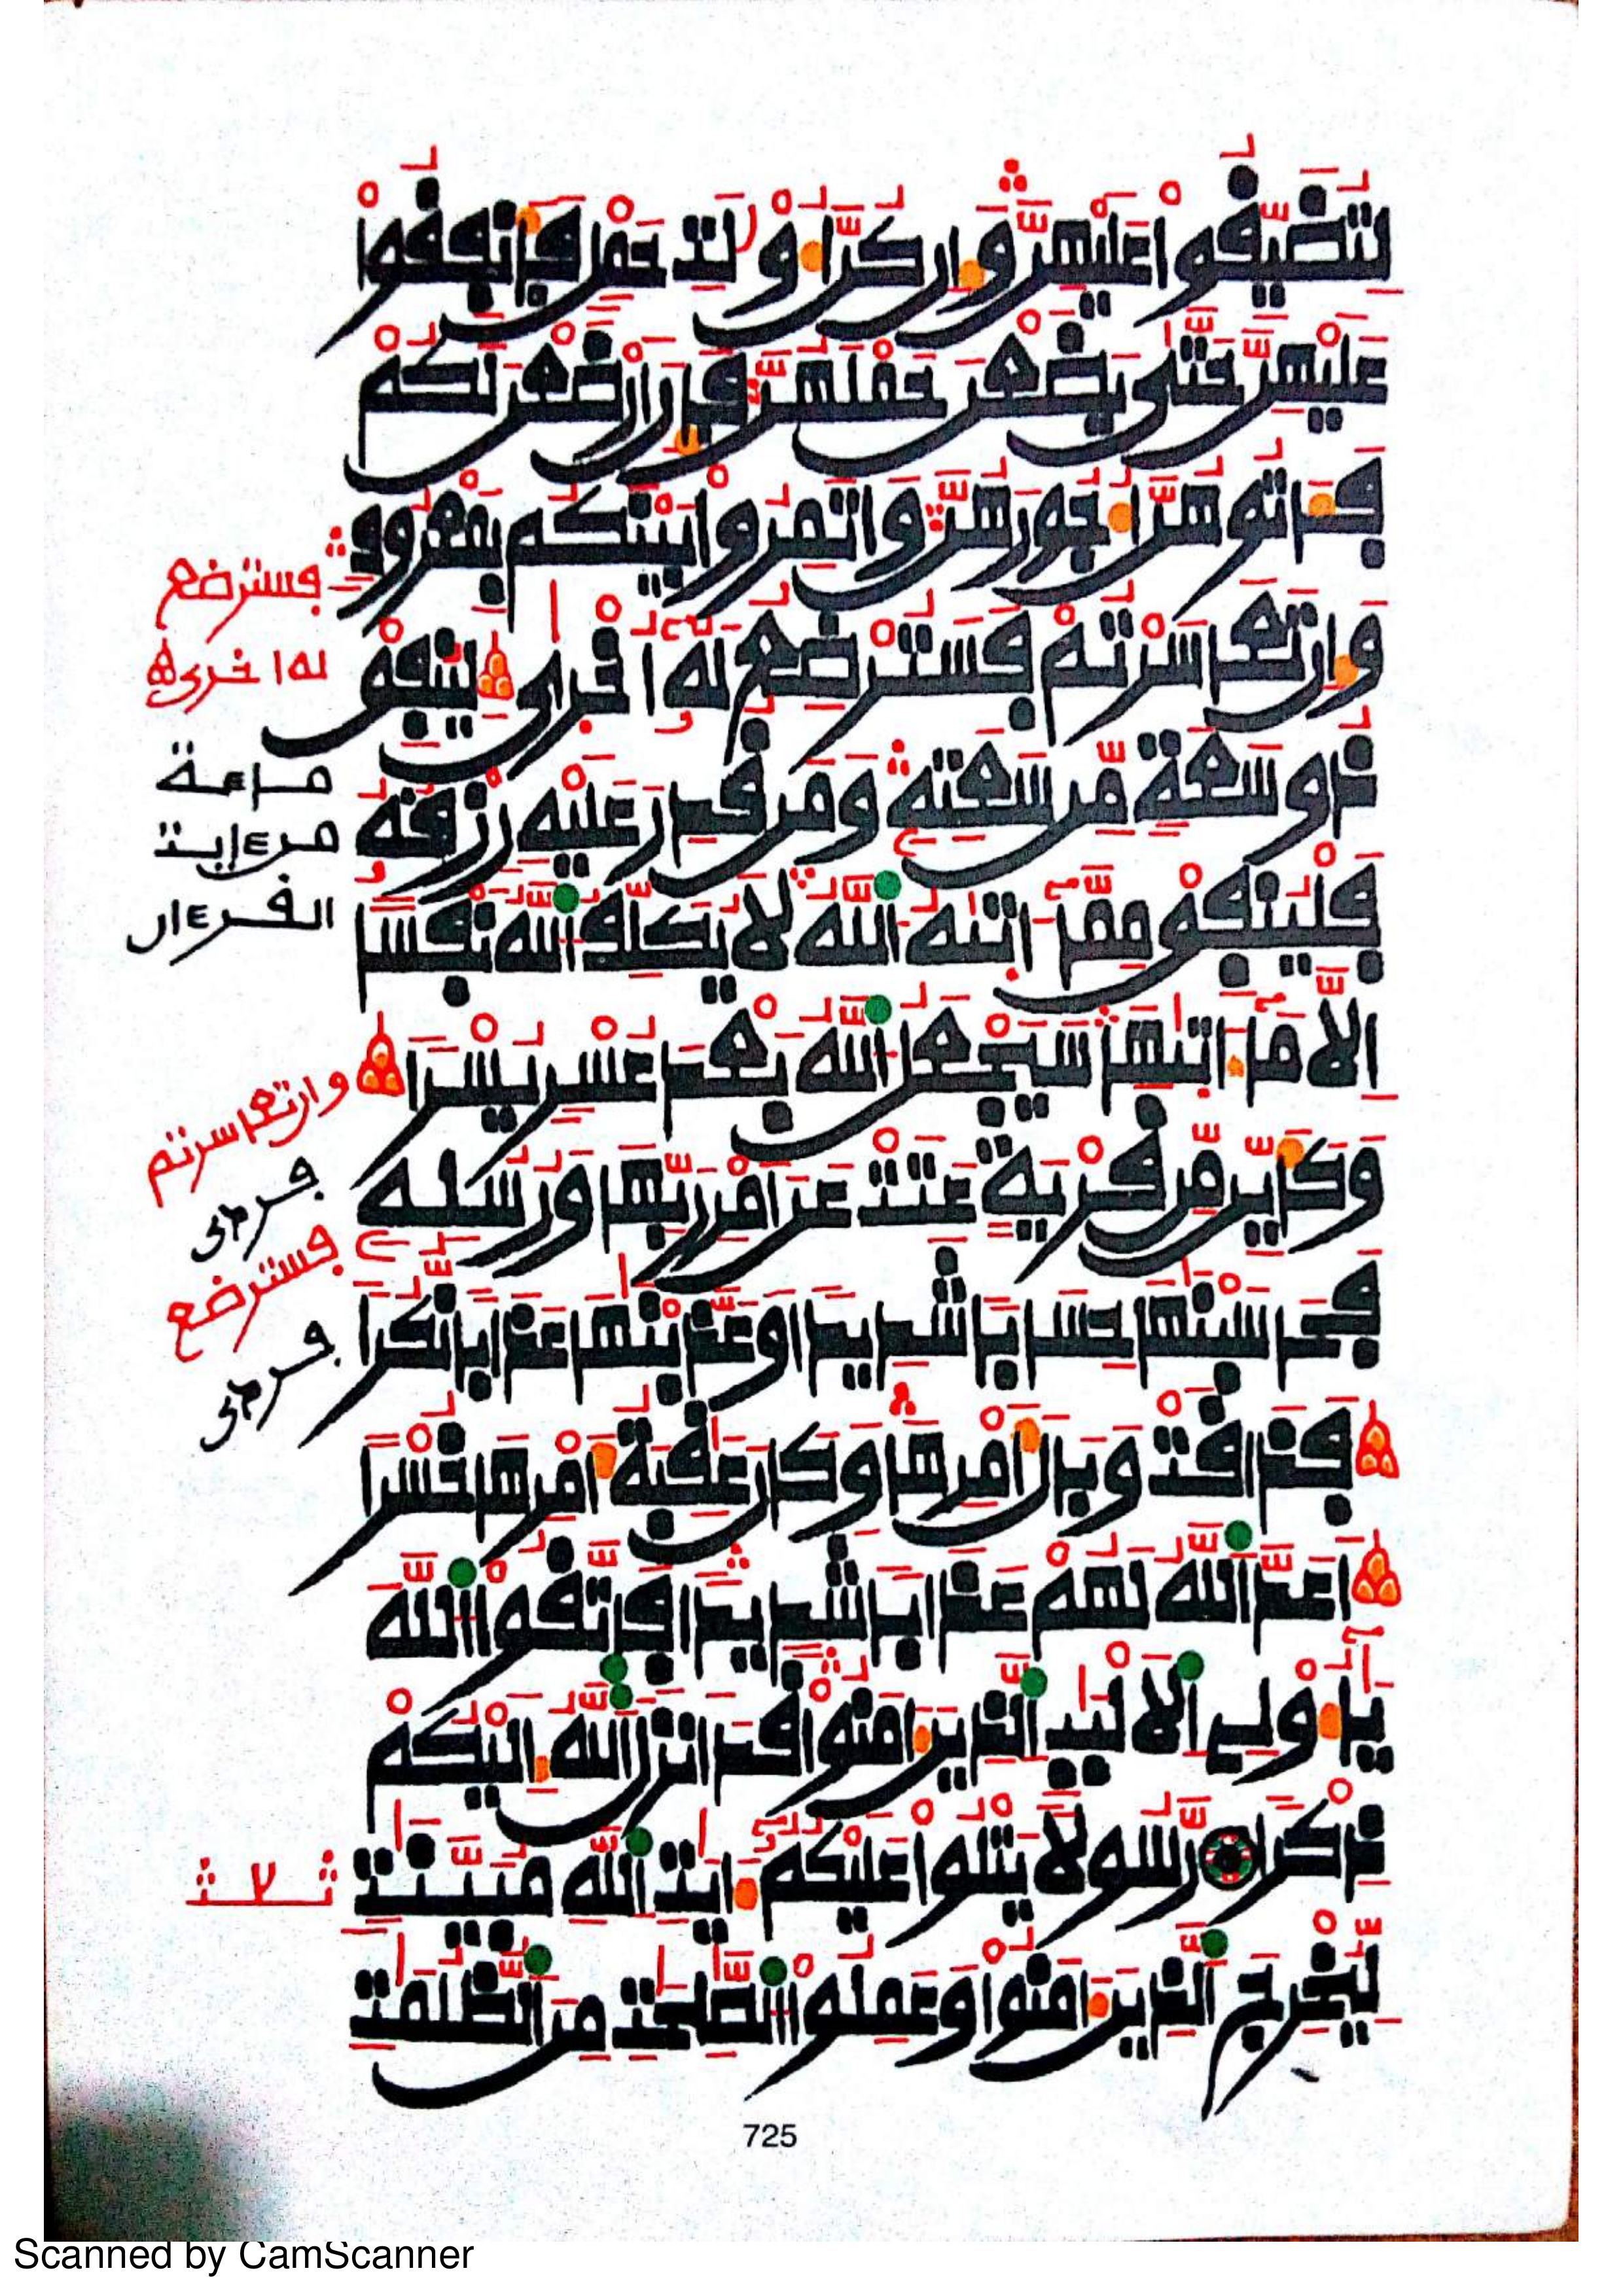 لِتُضَيِّقُوا عَلَيْهِنَّ وَإِن كُنَّ أُوْلَٰتِ حَمْلٍ فَأَنفِقُوا
عَلَيْهِنَّ حَتَّىٰ يَضَعْنَ حَمْلَهُنَّ فَإِنْ أَرْضَعْنَ لَكُمْ
فَـَٔاتُوهُنَّ أُجُورَهُنَّ وَأْتَمِرُوا بَيْنَكُم بِمَعْرُوفٍ
وَإِن تَعَاسَرْتُمْ فَسَتُرْضِعُ لَهُۥٓ أُخْرَىٰ لِيُنفِقْ
ذُو سَعَةٍ مِّن سَعَتِهِۦ وَمَن قُدِرَ عَلَيْهِ رِزْقُهُۥ
فَلْيُنفِقْ مِمَّآ ءَاتَىٰهُ ٱللَّهُ لَا يُكَلِّفُ ٱللَّهُ نَفْسًا
إِلَّا مَآ ءَاتَىٰهَا سَيَجْعَلُ ٱللَّهُ بَعْدَ عُسْرٍ يُسْرًا
وَكَأَيِّن مِّن قَرْيَةٍ عَتَتْ عَنْ أَمْرِ رَبِّهَا وَرُسُلِهِۦ
فَحَاسَبْنَٰهَا حِسَابًا شَدِيدًا وَعَذَّبْنَٰهَا عَذَابًا نُّكُرًا
فَذَاقَتْ وَبَالَ أَمْرِهَا وَكَانَ عَٰقِبَةُ أَمْرِهَا خُسْرًا
أَعَدَّ ٱللَّهُ لَهُمْ عَذَابًا شَدِيدًا فَٱتَّقُوا ٱللَّهَ
يَٰٓأُوْلِي ٱلْأَلْبَٰبِ ٱلَّذِينَ ءَامَنُوا قَدْ أَنزَلَ ٱللَّهُ إِلَيْكُمْ
ذِكْرًا رَّسُولًا يَتْلُوا عَلَيْكُمُۥٓ ءَايَٰتِ ٱللَّهِ مُبَيَّنَٰتٍ
لِّيُخْرِجَ ٱلَّذِينَ ءَامَنُوا وَعَمِلُوا ٱلصَّٰلِحَٰتِ مِنَ ٱلظُّلُمَٰتِ
فسترضع
له اخرى
مائة
من ءايت
القرءان
وان تعاسرتم
فسترضع
725
Scanned by CamScanner